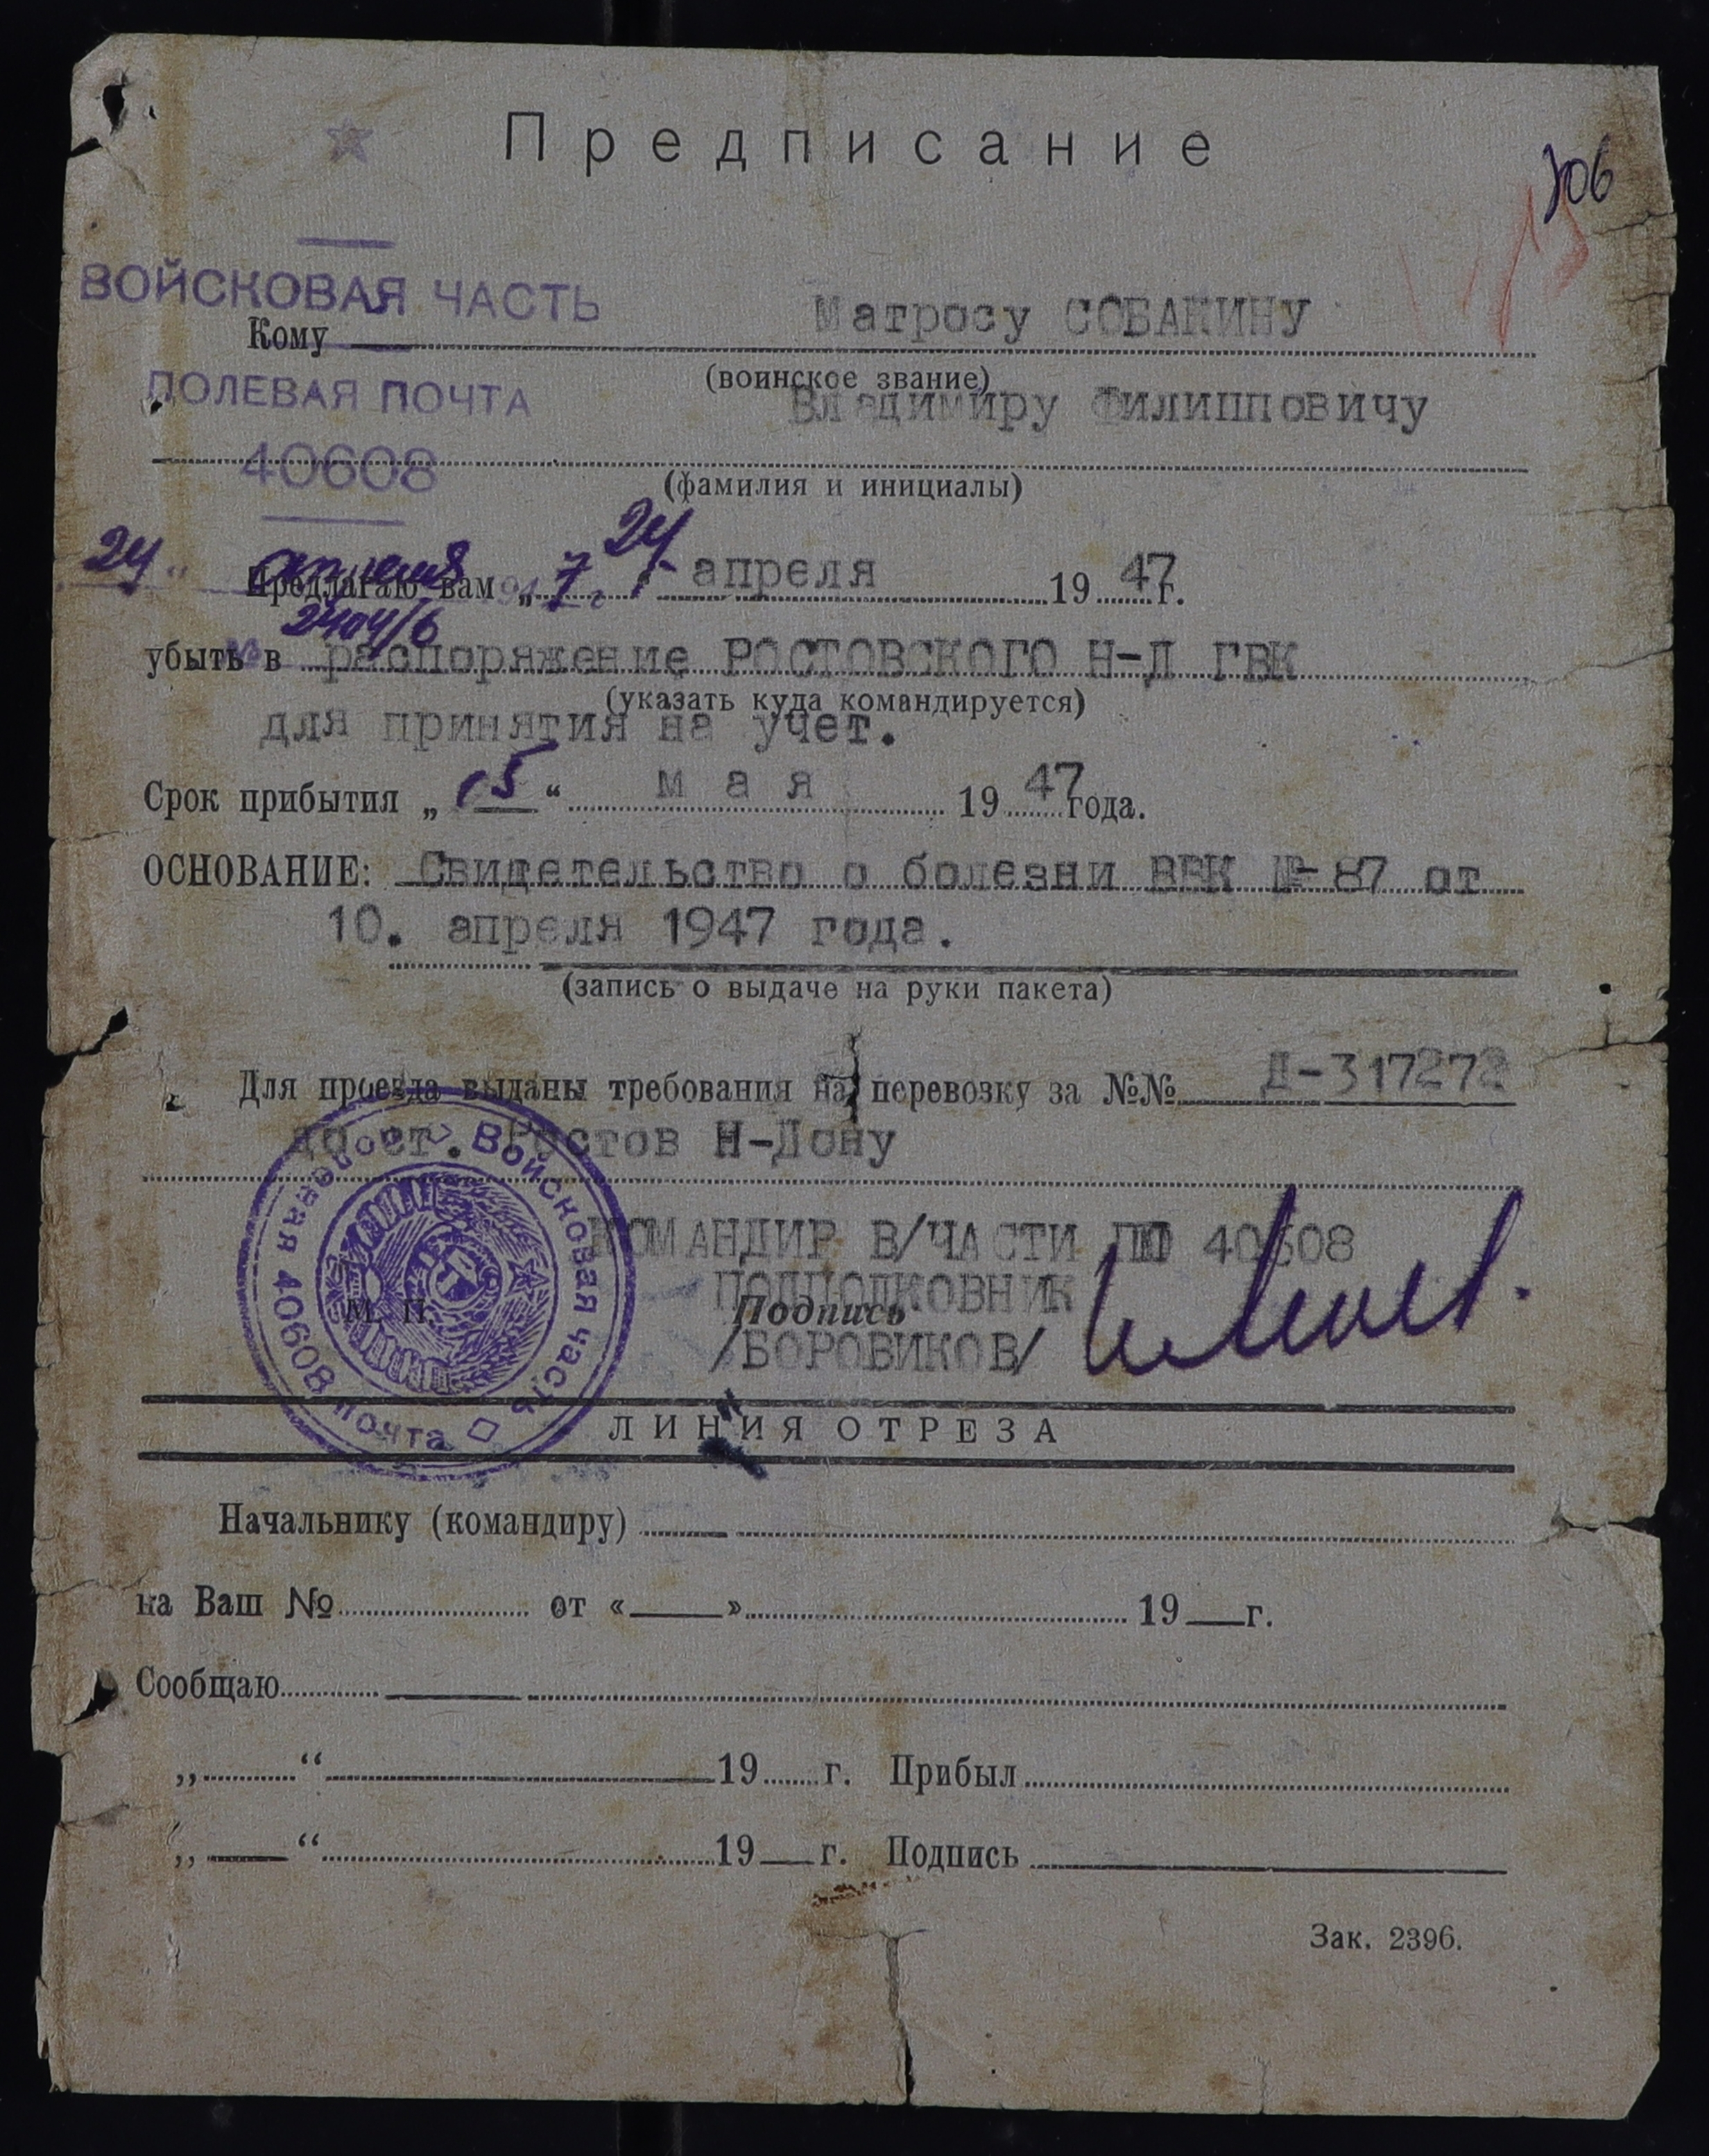 Предписание
106
ВОЙСКОВАЯ ЧАСТЬ
Кому Матросу СОБАКИНУ
(воинское звание)
ПОЛЕВАЯ ПОЧТА
Владимиру Филипповичу
40608
(фамилия и инициалы)
24 апреля 1947 г.
Предлагаю вам „24“ апреля 1947г.
№ 2404/6
убыть в распоряжение РОСТОВСКОГО Н-Д ГВК
(указать куда командируется)
для принятия на учет.
Срок прибытия „15“ м а я 1947года.
ОСНОВАНИЕ: Свидетельство о болезни ВВК № 87 от
10. апреля 1947 года.
(запись о выдаче на руки пакета)
Для проезда выданы требования на перевозку за №№ Д-317272
до ст. Ростов Н-Дону
Войсковая часть полевая почта 40608
КОМАНДИР В/ЧАСТИ ПП 40608
ПОДПОЛКОВНИК
М. П. Подпись
/БОРОВИКОВ/
ЛИНИЯ ОТРЕЗА
Начальнику (командиру)
на Ваш № от «___» 19__г.
Сообщаю
„ “ 19 г. Прибыл
„ “ 19 г. Подпись
Зак. 2396.